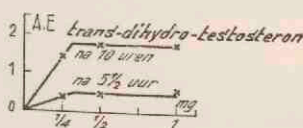 2 A.E trans-dihydro-testosteron
1 na 10 uren
na 5½ uur
0 mg
¼ ½ 1